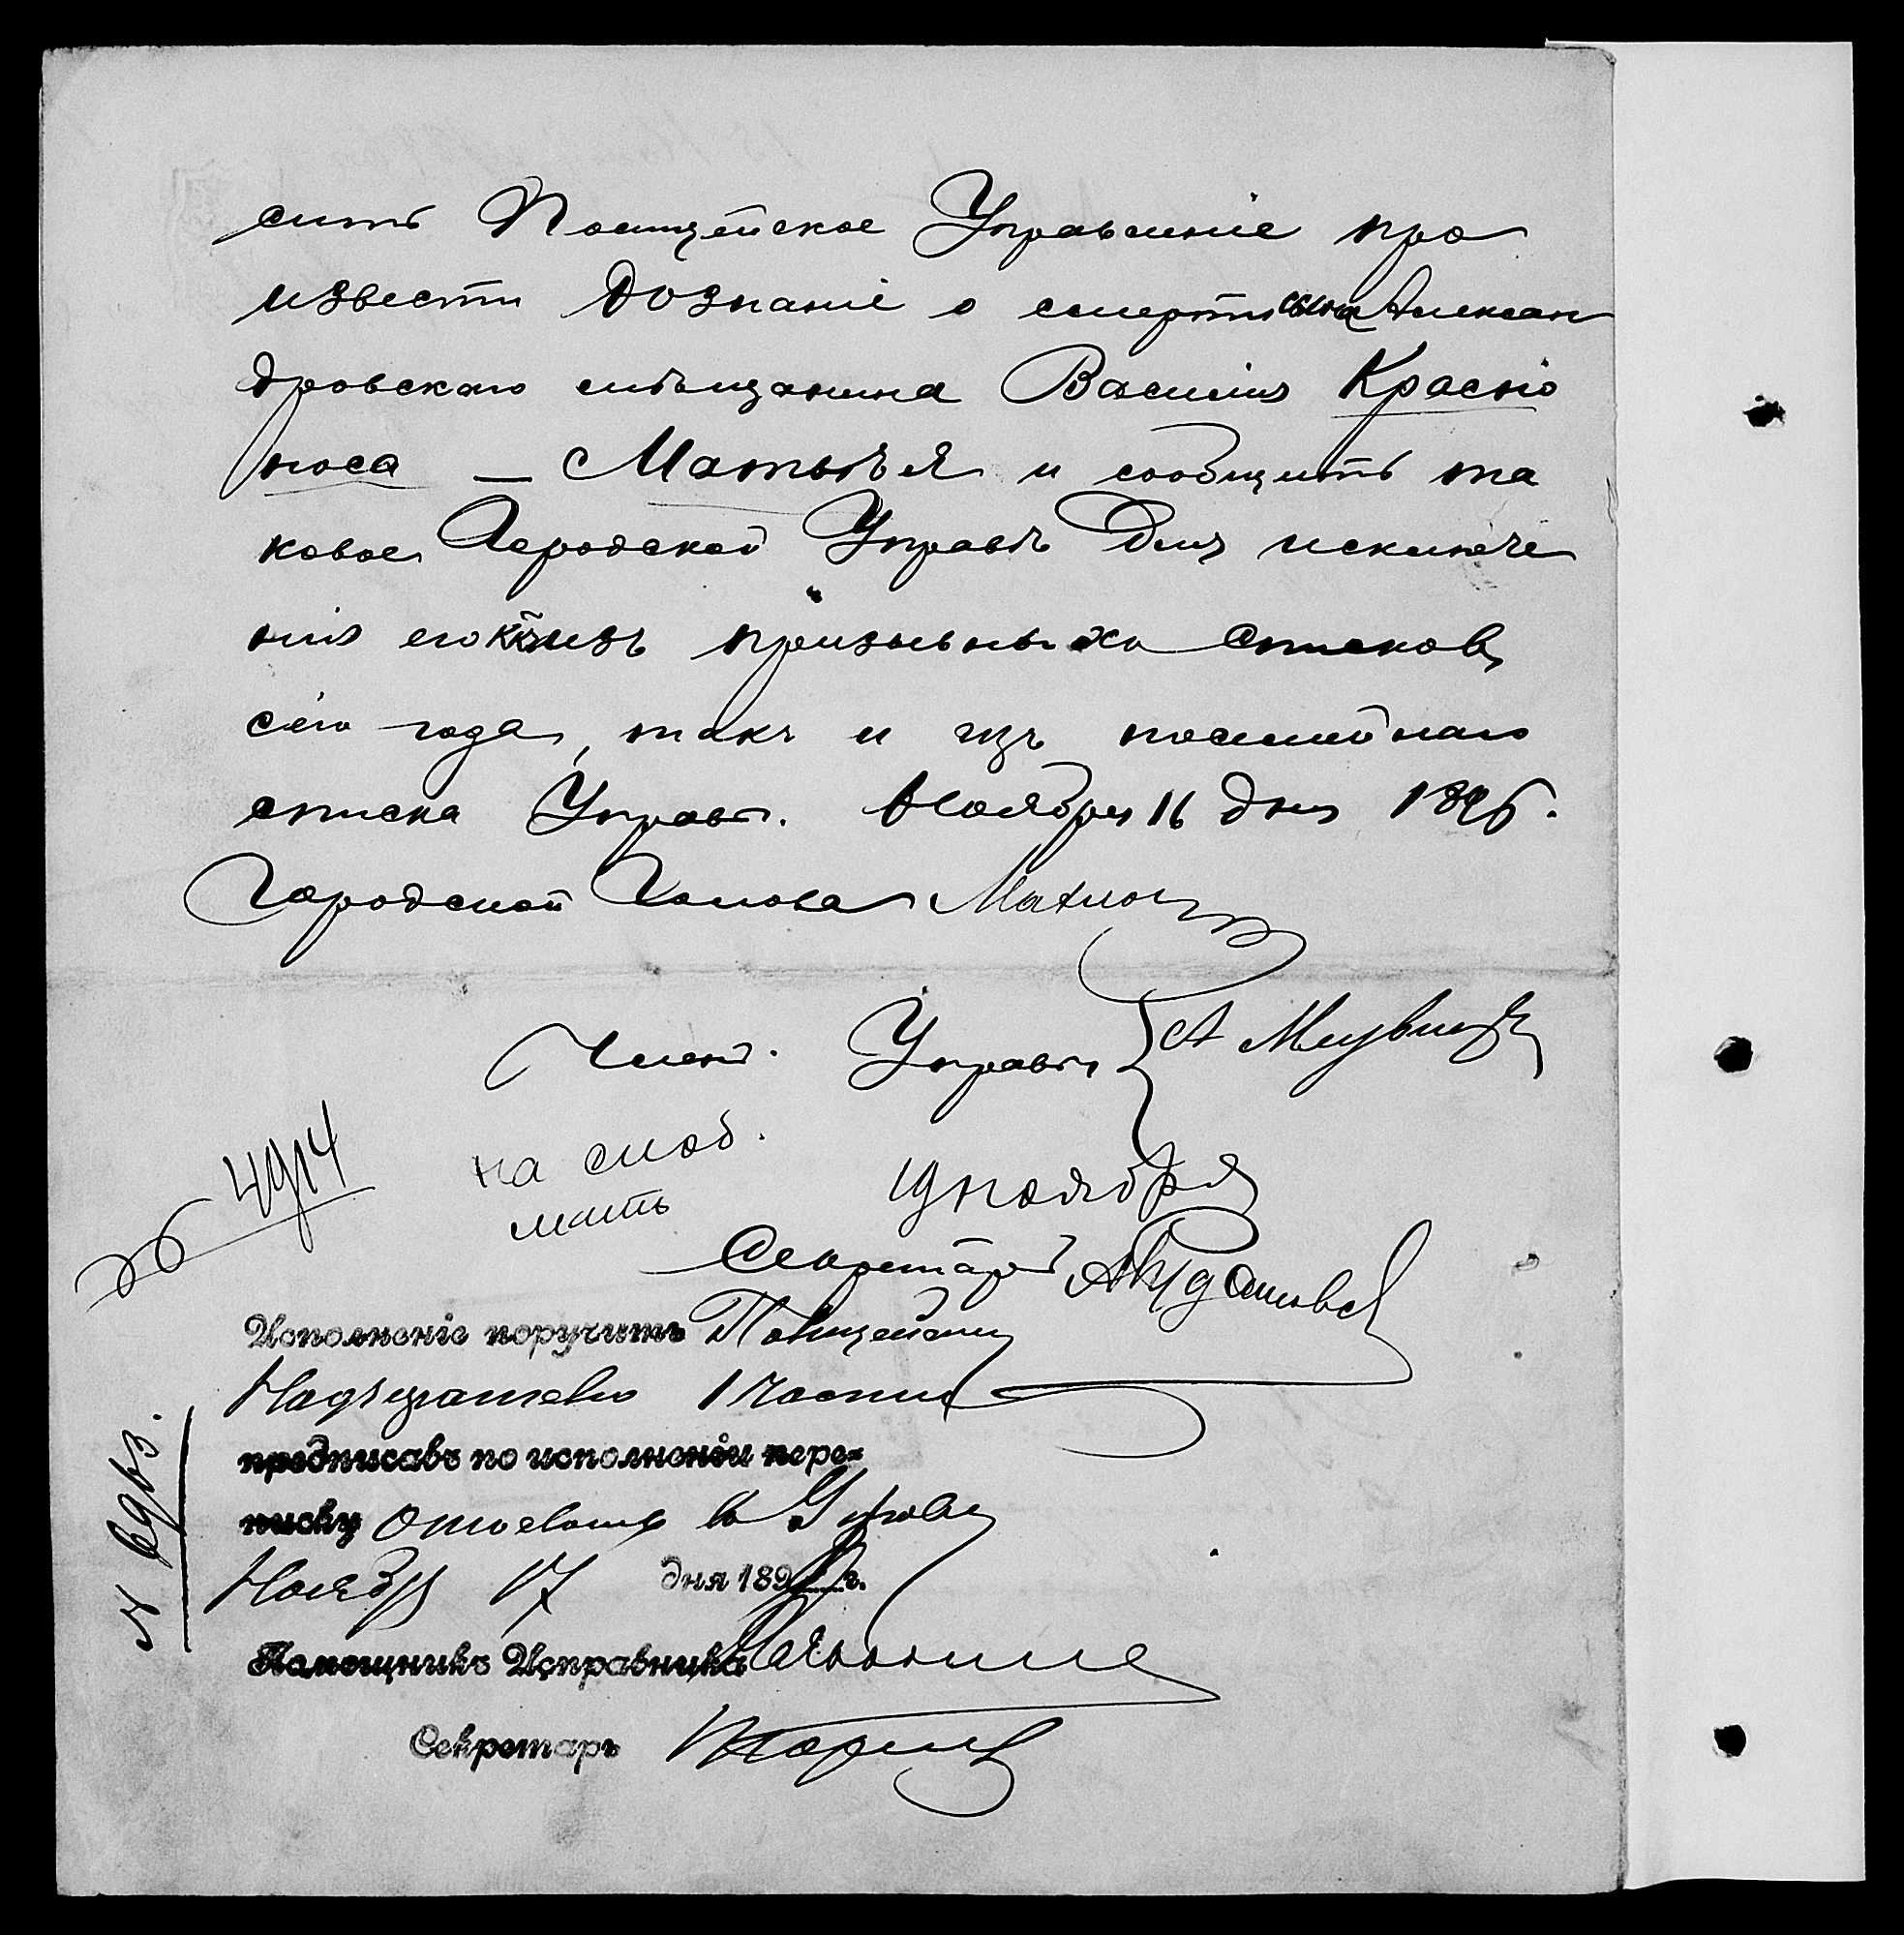 сить Полицейское Управленіе про
извести дознаніе о смерти сына Алексан
дровскаго мѣщанина Василія Красно
носа — Матвѣя и сообщить та
ковое Городской Управѣ для исключе
нія его какъ изъ призывныхъ списковъ
сего года, такъ и изъ посемейнаго
списка Управы. Ноября 16 дня 1896.
Городской Голова
Членъ Управы
А
19 ноября
Секретарь
4914
Исполненіе поручить Полицейскому
Надзирателю 1 части
предписавъ по исполненіи пере-
писку в Управу
Ноября 17 дня 189 г.
Помощникъ Исправника
Секретарь